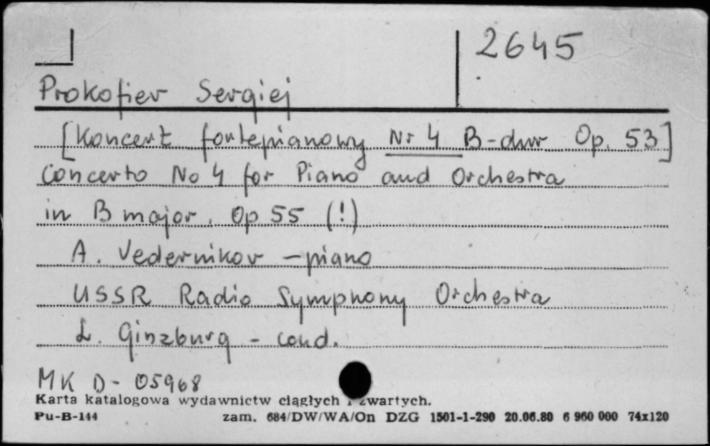 2645
Prokofiev Sergiej
[Koncert fortepianowy Nr 4 B-dur Op. 53]
Concerto No 4 for Piano and Orchestra
in B major, Op 55 (!)
A. Vedernikov - piano
USSR Radio Symphony Orchestra
L. Ginzburg - cond.
MK D- 05968
Karta katalogowa wydawnictw ciągłych i zwartych.
Pu-B-144 zam. 684/DW/WA/On DZG 1501-1-290 20.06.80 6 960 000 74x120